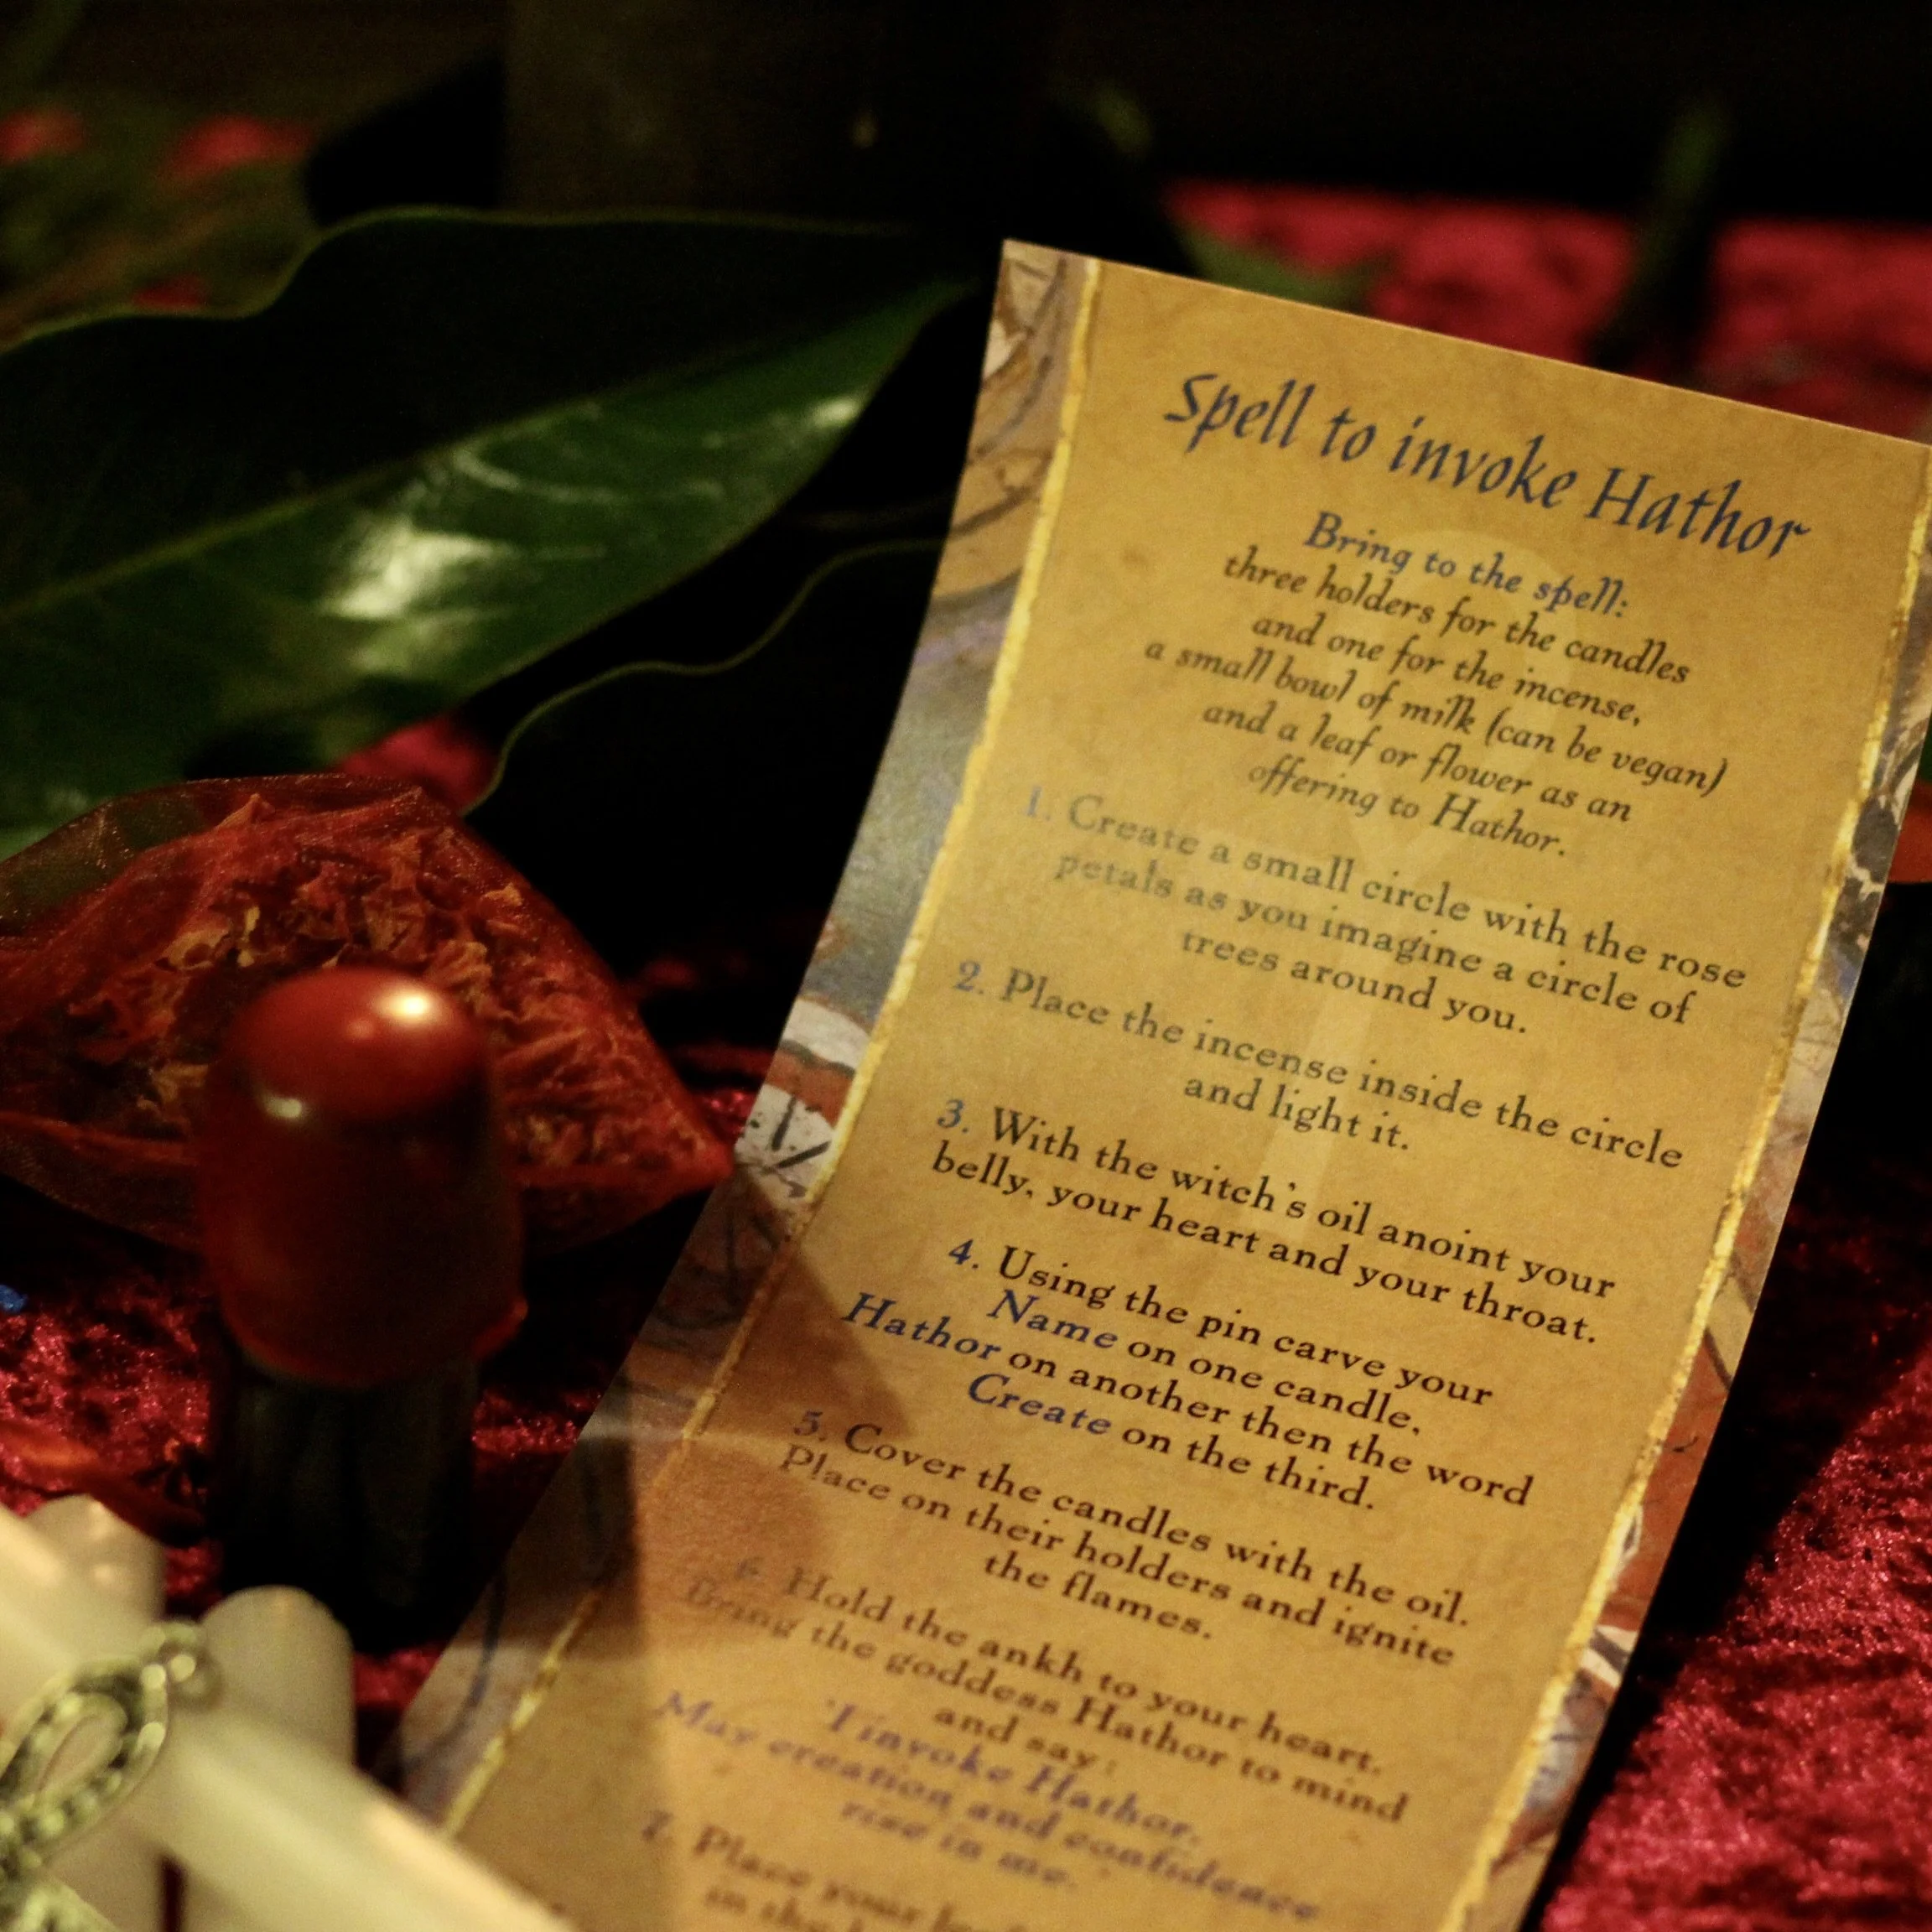 Spell to invoke Hathor
Bring to the spell:
three holders for the candles
and one for the incense,
a small bowl of milk (can be vegan)
and a leaf or flower as an
offering to Hathor.
1. Create a small circle with the rose
petals as you imagine a circle of
trees around you.
2. Place the incense inside the circle
and light it.
3. With the witch's oil anoint your
belly, your heart and your throat.
4. Using the pin carve your
Name on one candle,
Hathor on another then the word
Create on the third.
5. Cover the candles with the oil.
Place on their holders and ignite
the flames.
6. Hold the ankh to your heart.
Bring the goddess Hathor to mind
and say:
'I invoke Hathor.
May creation and confidence
rise in me.
7. Place your
in the